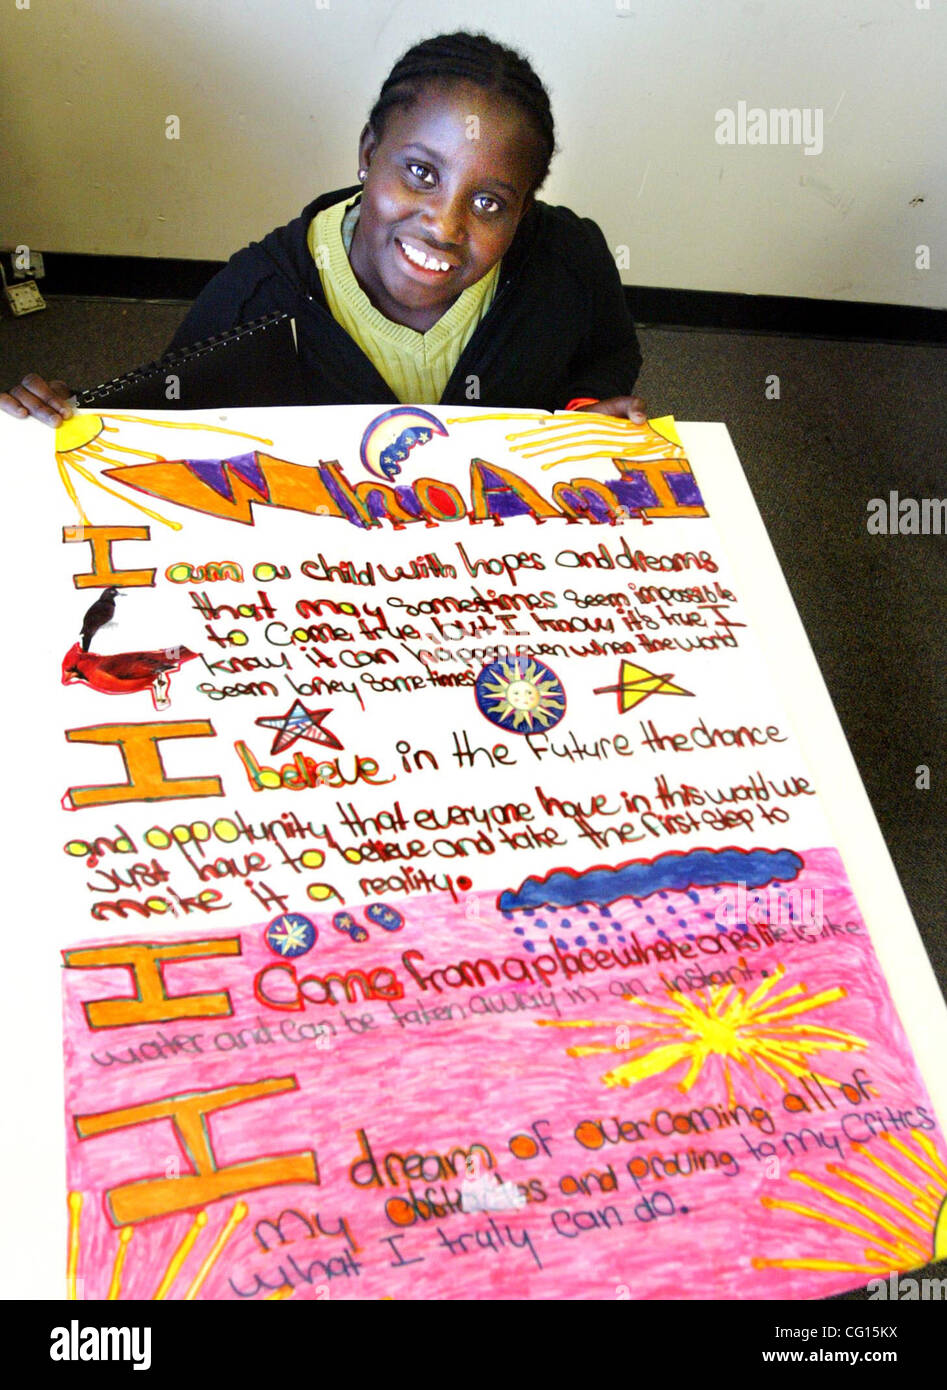 Who Am I
I am a child with hopes and dreams
that may sometimes seem impossible
to come true, but I know it's true I
know it can happen even when the world
seem loney sometimes
I believe in the future the chance
and oppotunity that everyone have in this world we
just have to believe and take the first step to
make it a reality.
I Come from a place where ones life is like
water and can be taken away in an instant.
I dream of overcoming all of
my obstacles and proving to my critics
what I truly can do.
alamy
alamy
Image ID: CG15KX
www.alamy.com